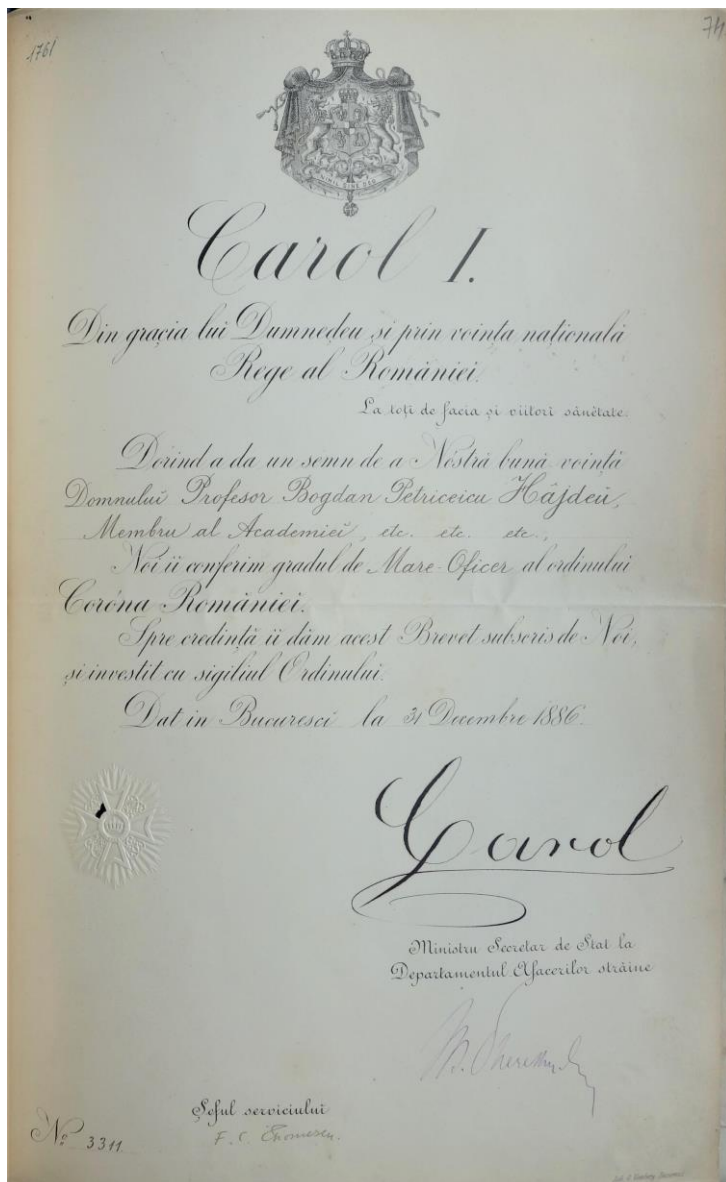 1761
74
NIHIL SINE DEO
Carol I.
Din grația lui Dumnedeu și prin voința națională
Rege al României.
La toți de facia și viitori sănătate.
Dorind a da un semn de a Nóstră bună voință
Domnului Profesor Bogdan Petriceicu Hâjdeŭ,
Membru al Academiei, etc. etc. etc.,
Noi ii conferim gradul de Mare-Oficer al ordinului
Coróna României.
Spre credință ii dăm acest Brevet subscris de Noi,
și investit cu sigiliul Ordinului.
Dat in Bucuresci la 31 Decembre 1886.
Carol
Ministru Secretar de Stat la
Departamentul Afacerilor străine
Șeful serviciului
F. C.
No 3311